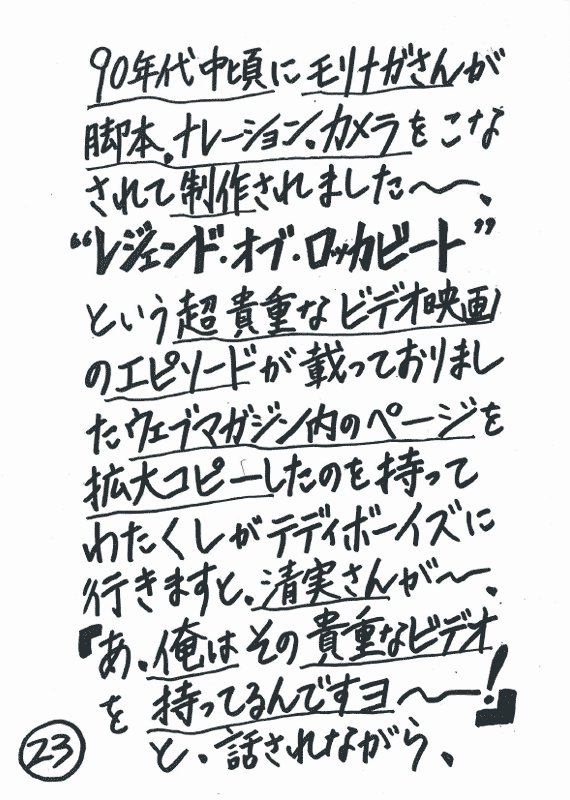 90年代中頃にモリナガさんが
脚本。ナレーション。カメラをこな
されて制作されました〜〜、
“レジェンド・オブ・ロッカビート”
という超貴重なビデオ映画
のエピソードが載っておりまし
たウェブマガジン内のページを
拡大コピーしたのを持って
わたくしがテディボーイズに
行きますと、清実さんが〜、
『あ、俺はその貴重なビデオ
を持ってるんですヨ〜〜!』
と、話されながら、
23